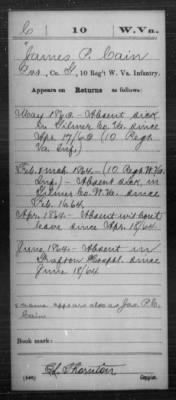 C | 10 | W.Va.
James P. Cain
, Co. G, 10 Reg't W. Va. Infantry.
Appears on Returns as follows:
May 1863 - Absent sick
in Gilmer Co. Va. since
Apr. 17/63 (10 Regt.
Va. Inf.)
Feb. & Mch 1864 - (10 Regt. W. Va.
Inf.) - Absent sick, in
Gilmer Co. W. Va. since
Feb. 16.64
Apr. 1864 - Absent without
leave since Apr. 15/64.
June, 1864 - Absent in
Grafton Hospl. since
June 18/64
name appears also as Jas. P. C.
Cain
Book mark:
Thornton
(546) Copyist.